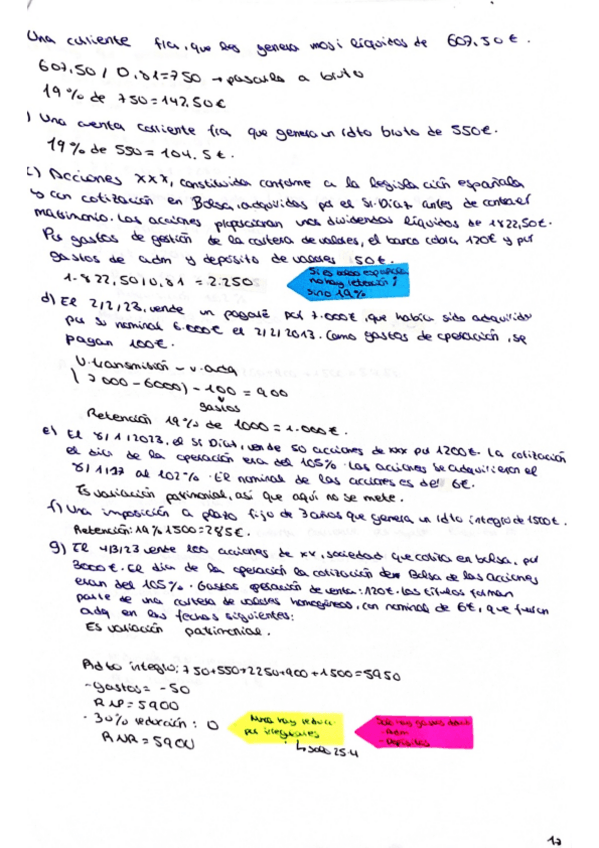 Una cuenta corriente fra, que les genera unos i líquidos de 607,50€.
607,50 / 0,81=750 → pasarla a bruto
19% de 750=142.50€
) Una cuenta corriente fra que genera un rdto bruto de 550€.
19% de 550 = 104,5€.
c) Acciones XXX, constituida conforme a la legislación española
con cotización en Bolsa, adquiridas por el Sr. Díaz antes de contraer
matrimonio. Las acciones proporcionan unos dividendos líquidos de 1822,50€.
Por gastos de gestión de la cartera de valores, el banco cobra 120€ y por
gastos de adm y depósito de valores 50€.
1.822,50/0,81 = 2.250
Si es bolsa española
no hay retención,
sino 19%
d) El 2/2/23, vende un pagaré por 7.000€, que había sido adquirido
por su nominal 6.000€ el 2/2/2013. Como gastos de operación, se
pagan 100€.
V. transmisión - v. adq
(7000-6000) - 100 = 900
gastos
Retención 19% de 1000 = 1.000€.
e) El 8/1/2023, el Sr Díaz, vende 50 acciones de xxx por 1200€. La cotización
el día de la operación era del 105%. Las acciones se adquirieron el
8/1/17 al 102%. El nominal de las acciones es de 6€.
Es variación patrimonial, así que aquí no se mete.
f) Una imposición a plazo fijo de 3 años que genera un rdto íntegro de 1500€.
Retención: 19% 1500=285€.
g) El 4/3/23 vende 100 acciones de xv, sociedad que cotiza en bolsa, por
3000€. El día de la operación la cotización de Bolsa de las acciones
eran del 105%. Gastos operación de venta: 120€. Los títulos forman
parte de una cartera de valores homogéneos, con nominal de 6€, que fueron
adq en las fechas siguientes:
Es variación patrimonial.
Rdto íntegro: 750+550+2250+900+1500=5950
-gastos= -50
RNP= 5900
- 30% reducción: 0
Nunca hay reducc
por irregulares
↳ solo 25.4
Solo hay gastos
- Adm
- Depósitos
RNR=5900
17